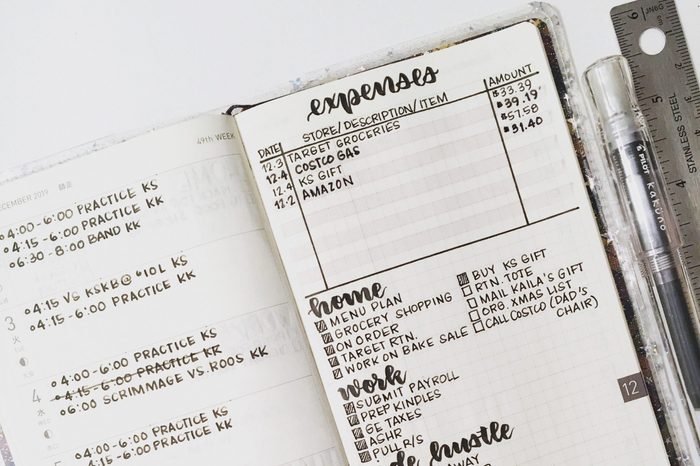 49th WEEK
DECEMBER 2019 師走
4:00-6:00 PRACTICE KS
4:15-6:00 PRACTICE KK
6:30-8:00 BAND KK
3
火
4:15 VS KSKB@ 610L KS
4:15-6:00 PRACTICE KK
4
水
4:00-6:00 PRACTICE KS
4:15-6:00 PRACTICE KK
6:00 SCRIMMAGE VS. ROOS KK
5
4:00-6:00 PRACTICE KS
4:15-6:00 PRACTICE KK
expenses
DATE STORE/DESCRIPTION/ITEM AMOUNT
12.3 TARGET GROCERIES $33.39
12.4 COSTCO GAS $39.19
12.4 KS GIFT $17.58
12.2 AMAZON $31.40
home
MENU PLAN
GROCERY SHOPPING
ON ORDER
TARGET RTN.
WORK ON BAKE SALE
BUY KS GIFT
RTN. TOTE
MAIL KAILA'S GIFT
ORG. XMAS LIST
CALL COSTCO (DAD'S
CHAIR)
work
SUBMIT PAYROLL
PREP KINDLES
GE TAXES
ASHR
PULL R/S
hustle
12
PILOT Kakuno
6
5
4
STAINLESS STEEL